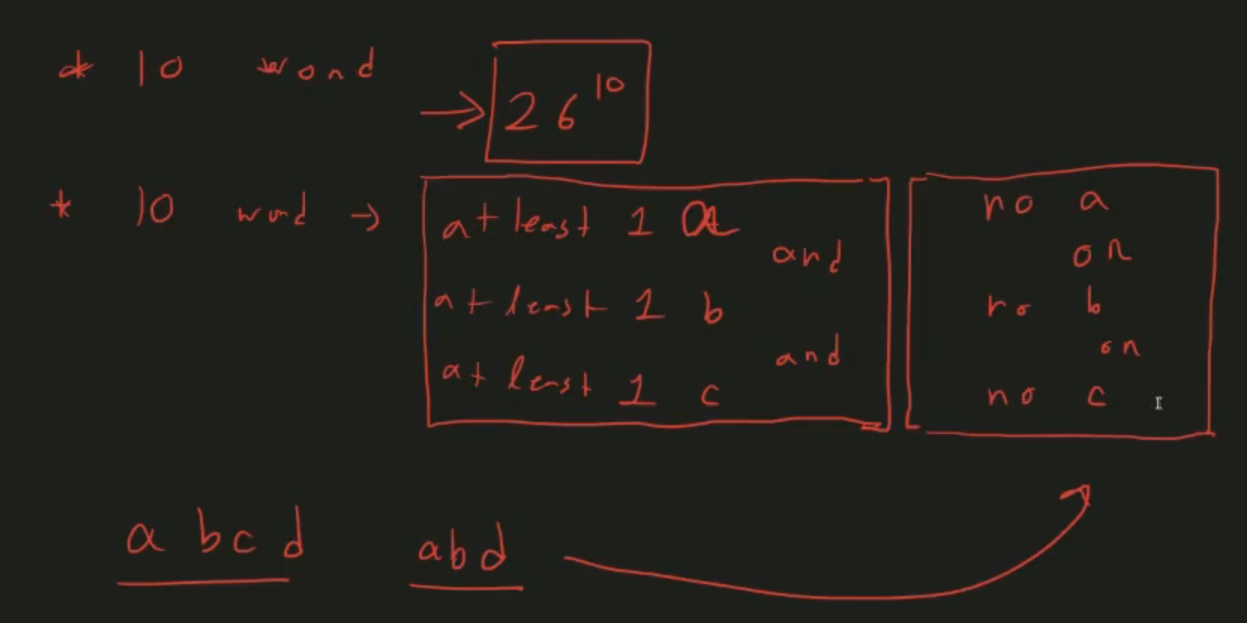 * 10 word
→ 26^10
* 10 word →
at least 1 a
and
at least 1 b
and
at least 1 c
no a
or
no b
or
no c
a b c d
abd